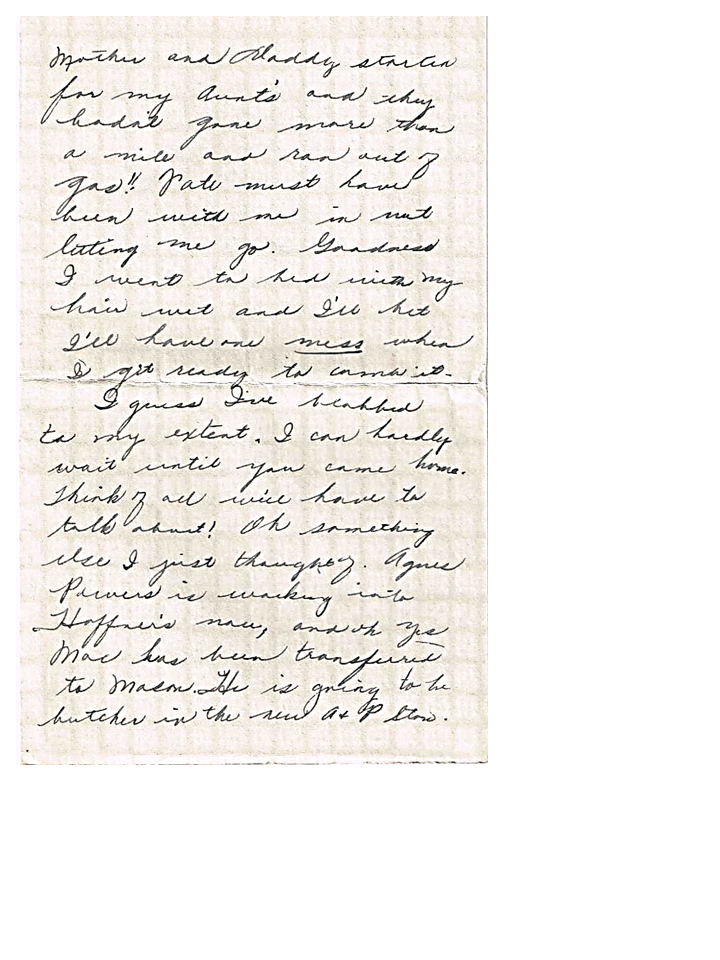 Mother and Daddy started
for my Aunt's and they
hadn't gone more than
a mile and ran out of
gas!! Fate must have
been with me in not
letting me go. Goodness
I went to bed with my
hair wet and I'll bet
I'll have one mess when
I get ready to comb it.
I guess I've blabbed
to my extent. I can hardly
wait until you come home.
Think of all we'll have to
talk about! Oh something
else I just thought of. Agnes
Powers is working into
Hoffner's now, and oh yes
Mac has been transferred
to Mason. He is going to be
butcher in the new A & P Store.